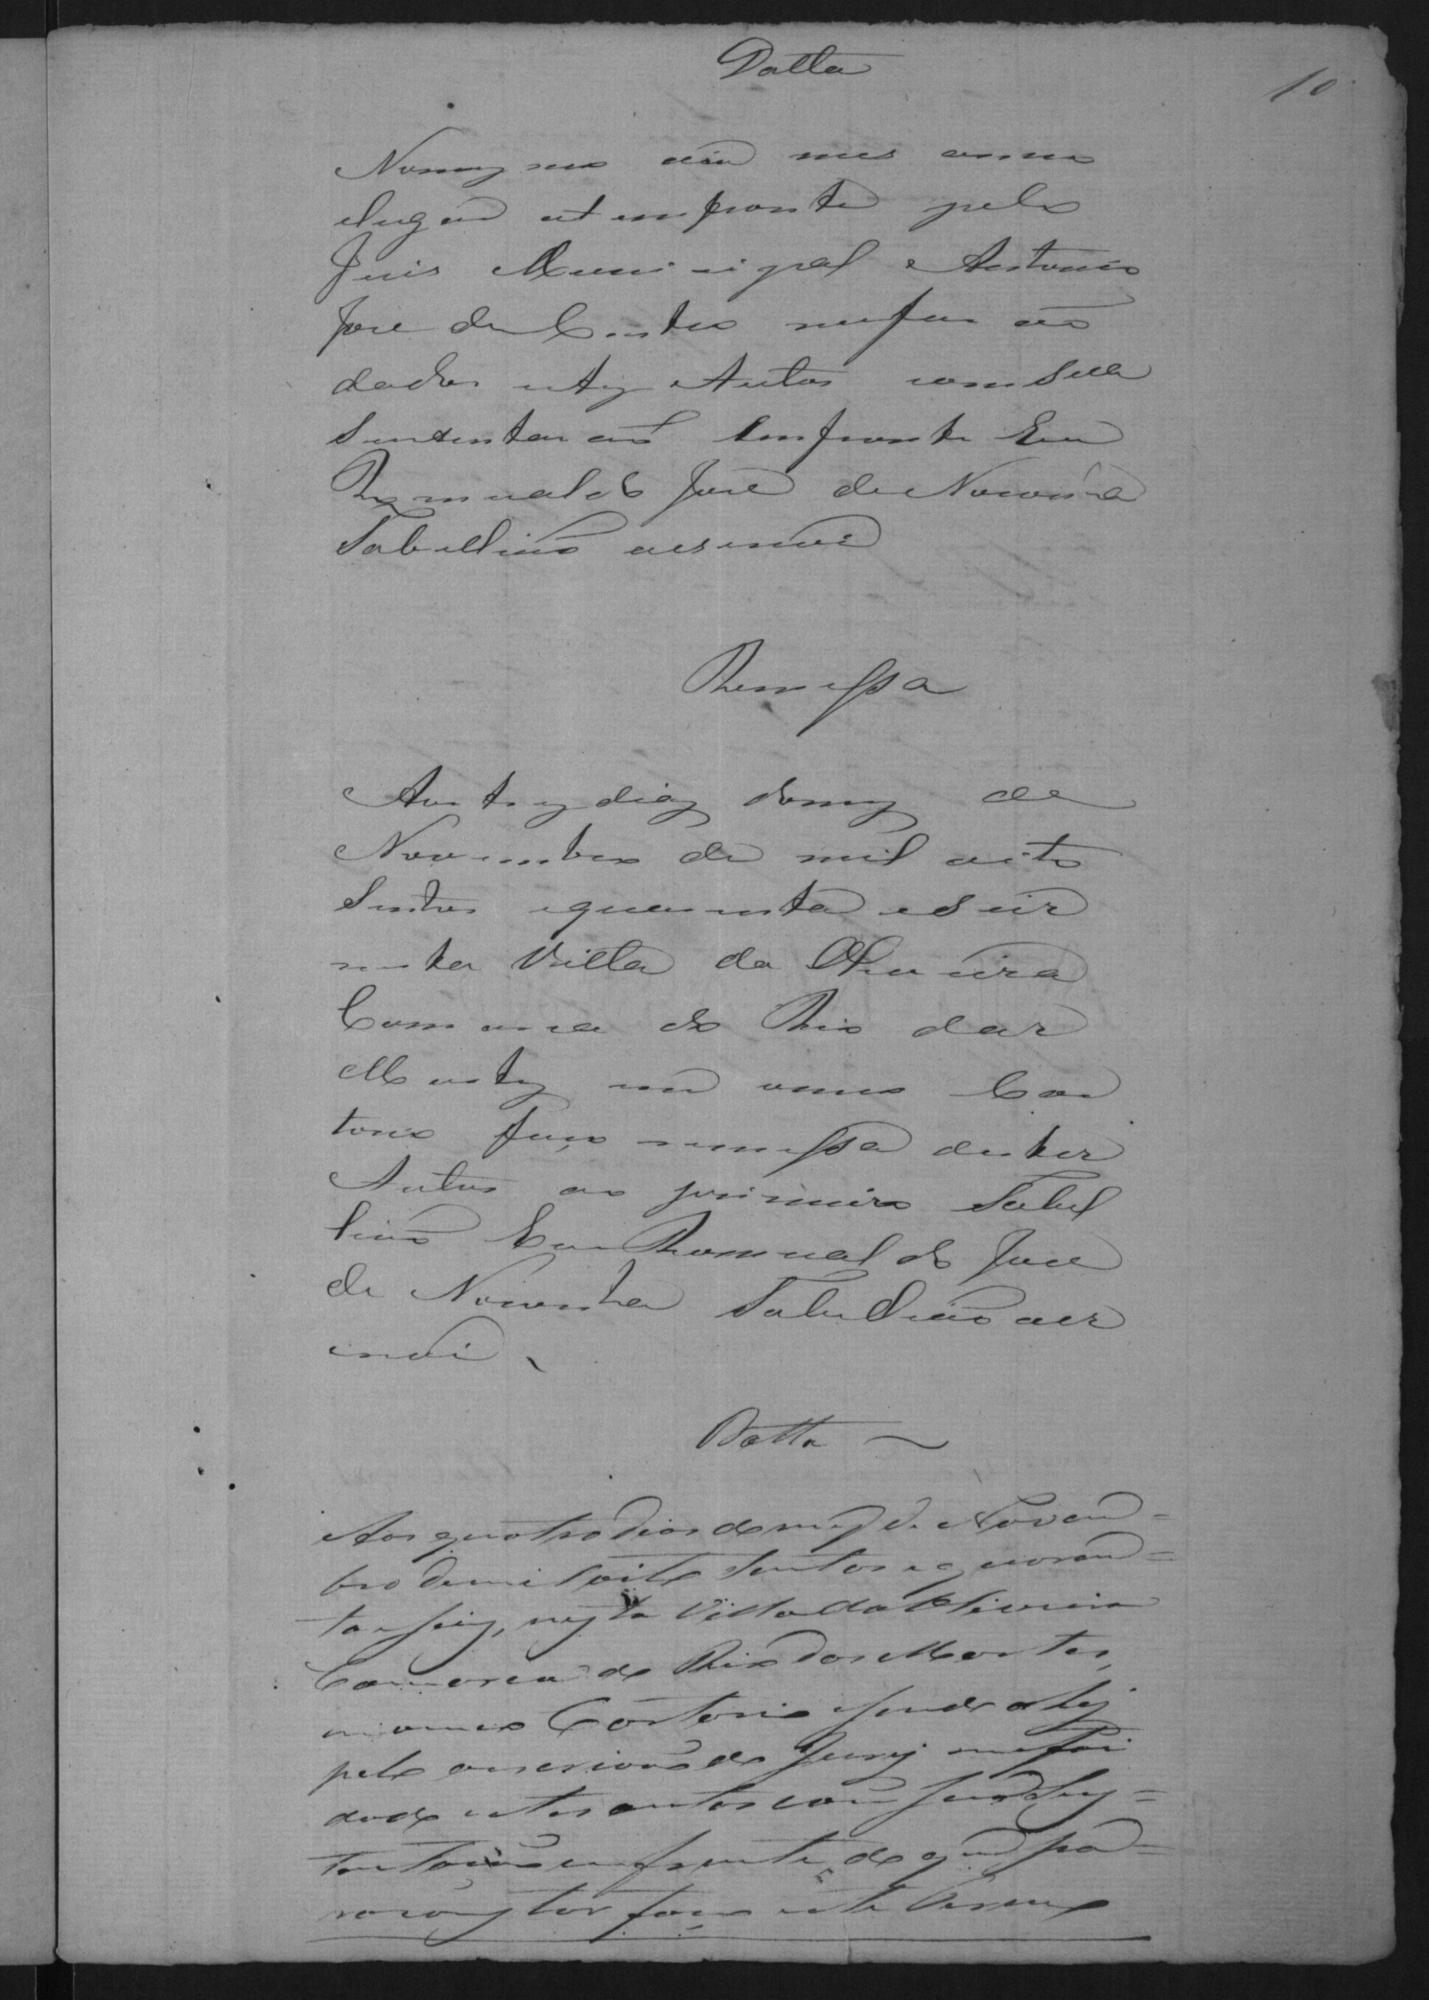 Datta
10
No mesmo dia mes anno
elugar at emfronte pelo
Juis Municipal Antonio
Jose de Castro me foi ão
dados estes Autos com sua
Sustentacaõ Emfronte Eu
Romualdo José de Noronha
Tabelliaõ escrevi
Remessa
Aos tres dias do mes de
Novembro de mil oito
Sentos equarenta eseis
nesta Villa da Oliveira
Comarca do Rio das
Mortes em omeo Car
torio faço remessa destes
Autos ao primeiro Tabel
liaõ Eu Romualdo Jose
de Noronha Tabelliaõ aes
crevi.
Datta
Aos quatro dias do mes de Novem=
bro de mil oito Sentos e quaren=
ta e seis, nesta Villa da Oliveira
Comarca do Rio das Mortes,
em meo Cartorio sendo ahi
pelo escrivaõ do Jury me foi
dado estes autos com sua Sus=
tentaçaõ emfrente, do que pa=
ra constar faço este termo